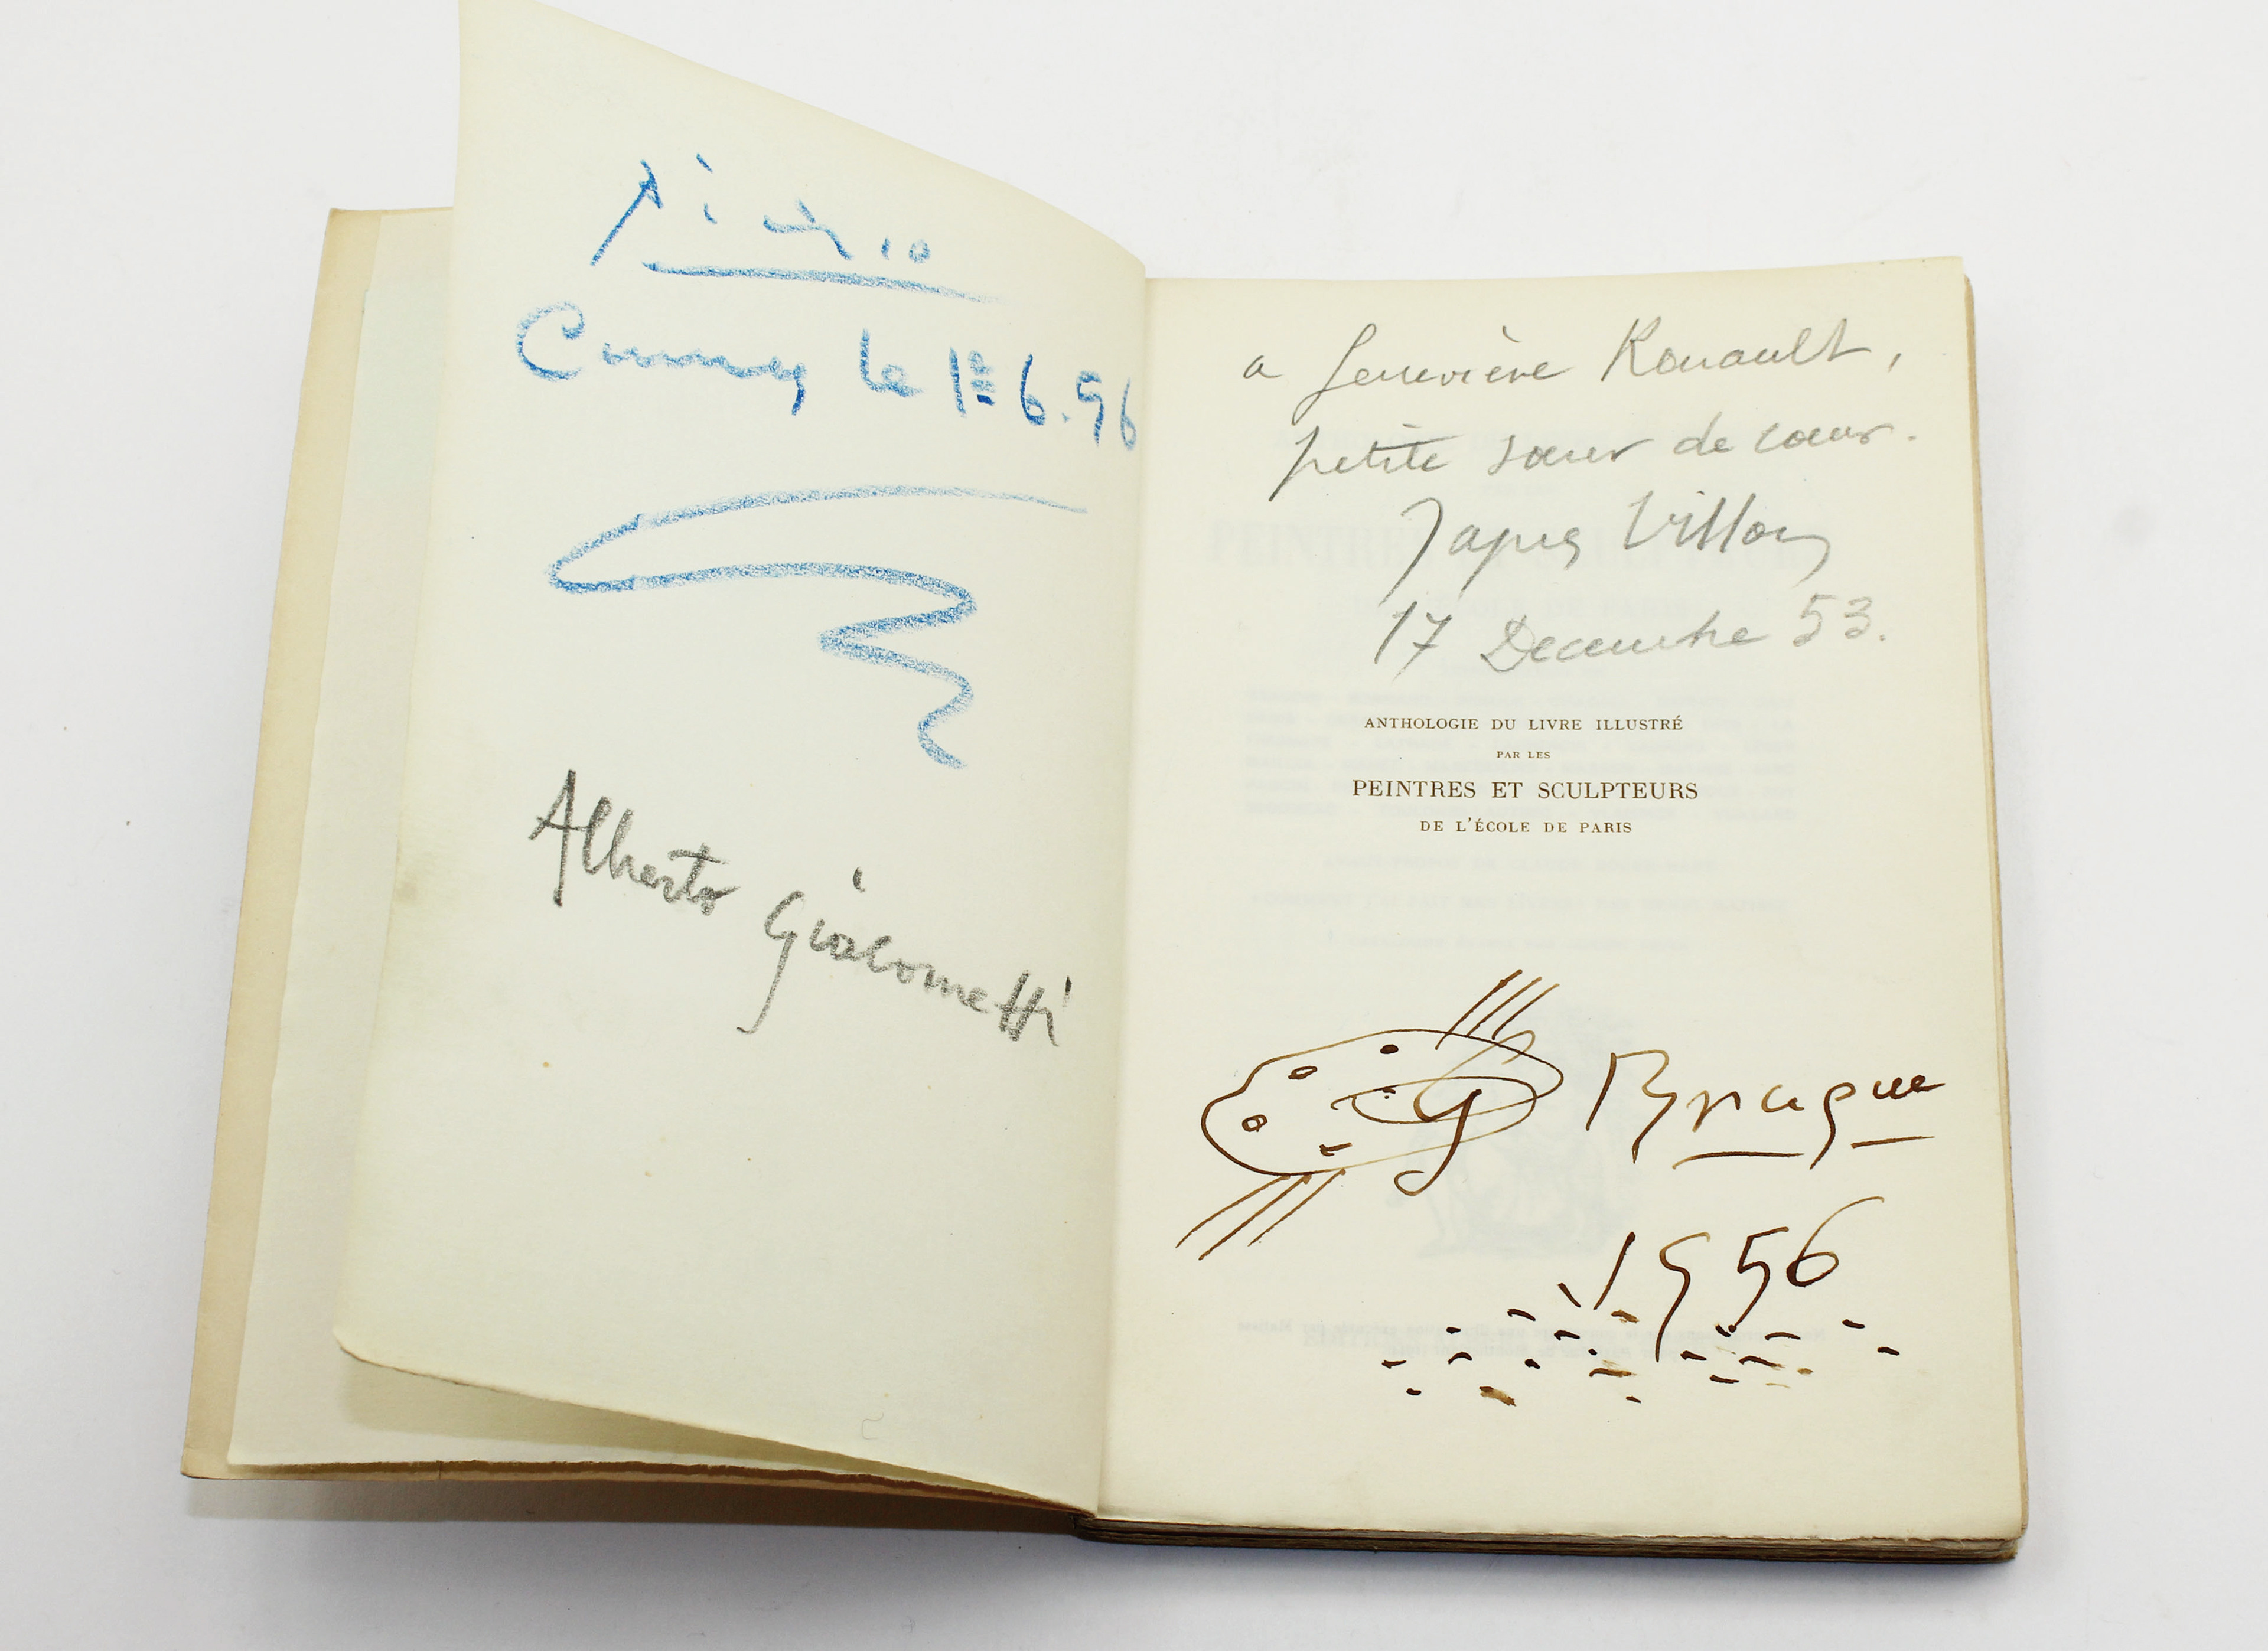 Picasso
Cannes le 1er 6.56
Alberto Giacometti
a Geneviève Rouault,
petite sœur de cœur.
Jacques Villon
17 Decembre 53.
ANTHOLOGIE DU LIVRE ILLUSTRÉ
PAR LES
PEINTRES ET SCULPTEURS
DE L'ÉCOLE DE PARIS
G Braque
1956